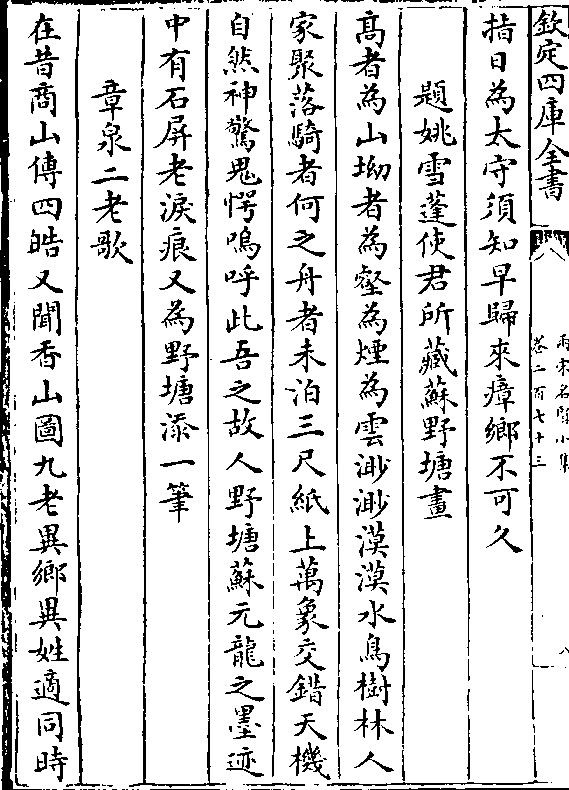 欽定四庫全書
兩宋名賢小集
卷二百七十三
八
指日為太守須知早歸來瘴鄉不可久
題姚雪蓬使君所藏蘇野塘畫
髙者為山坳者為壑為煙為雲渺渺漠漠水鳥樹林人
家聚落騎者何之舟者未泊三尺紙上萬象交錯天機
自然神驚鬼愕嗚呼此吾之故人野塘蘇元龍之墨迹
中有石屏老淚痕又為野塘添一筆
章泉二老歌
在昔商山傳四皓又聞香山圖九老異鄉異姓適同時